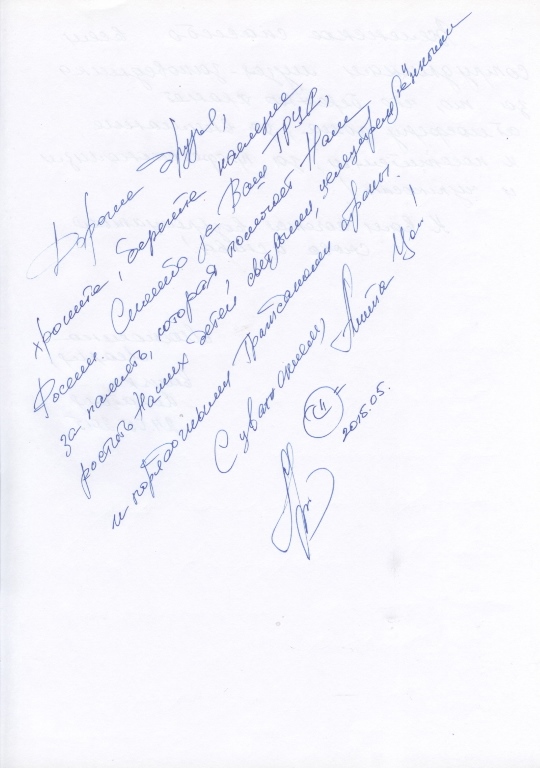 Дорогие друзья,
храните, берегите наследие
России. Спасибо за Ваш ТРУД,
за память, которая помогает Нам
растить Наших детей светлыми, целеустремлёнными
и порядочными Гражданами страны.
С уважением,
2015.05.